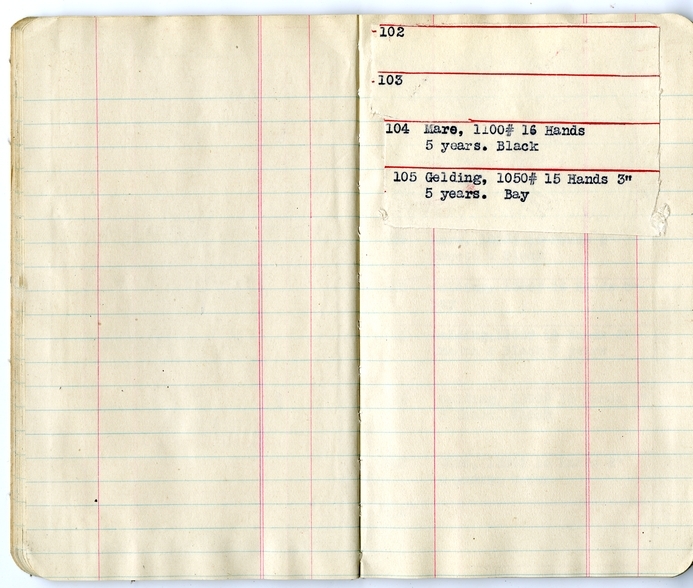 102
103
104 Mare, 1100# 16 Hands
5 years. Black
105 Gelding, 1050# 15 Hands 3"
5 years. Bay